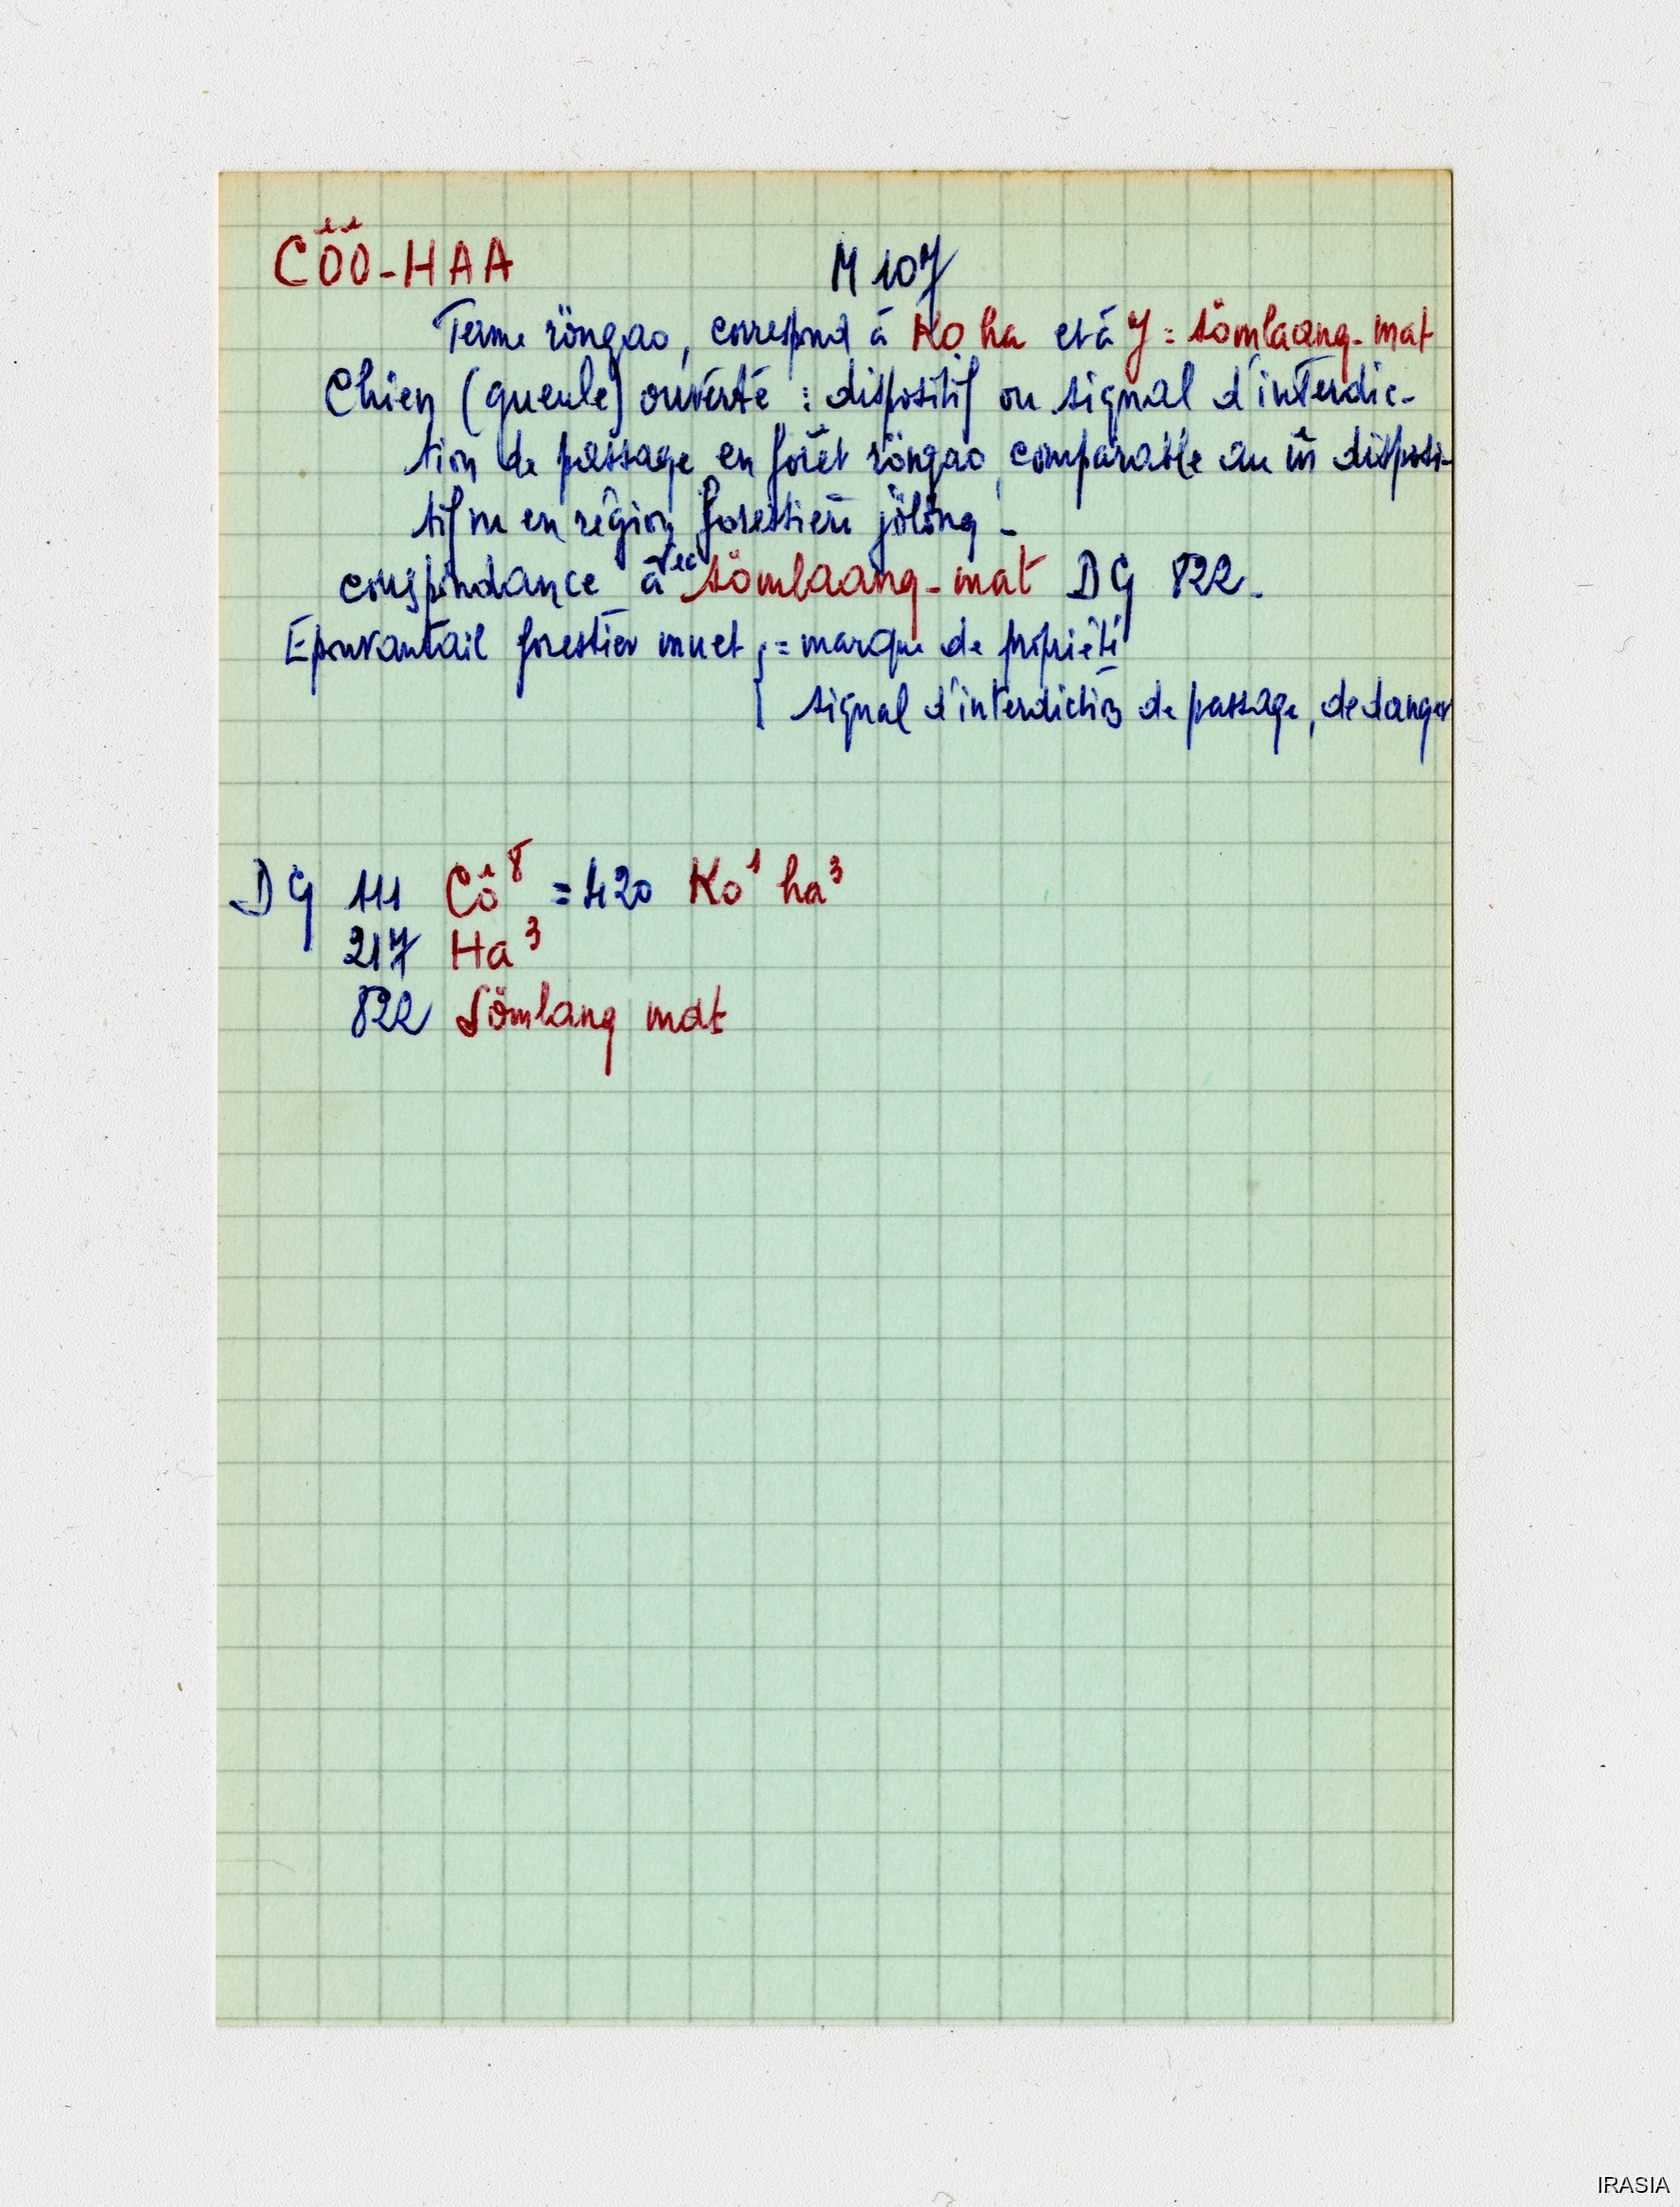 CÔÔ-HAA M 107
Terme röngao, correspond à Ko ha et à 7 = sömlaang-mat
Chien (gueule) ouverte : dispositif ou signal d'interdic-
tion de passage en forêt röngao, comparable au disposi-
tif vu en région forestière jölöng -
à sömlaang-mat DG 822.
Epouvantail forestier muet = marque de propriété
signal d'interdiction de passage, de danger
DG 111 Cô⁸ = 420 Ko¹ ha³
217 Ha³
822 Sömlang mat
IRASIA